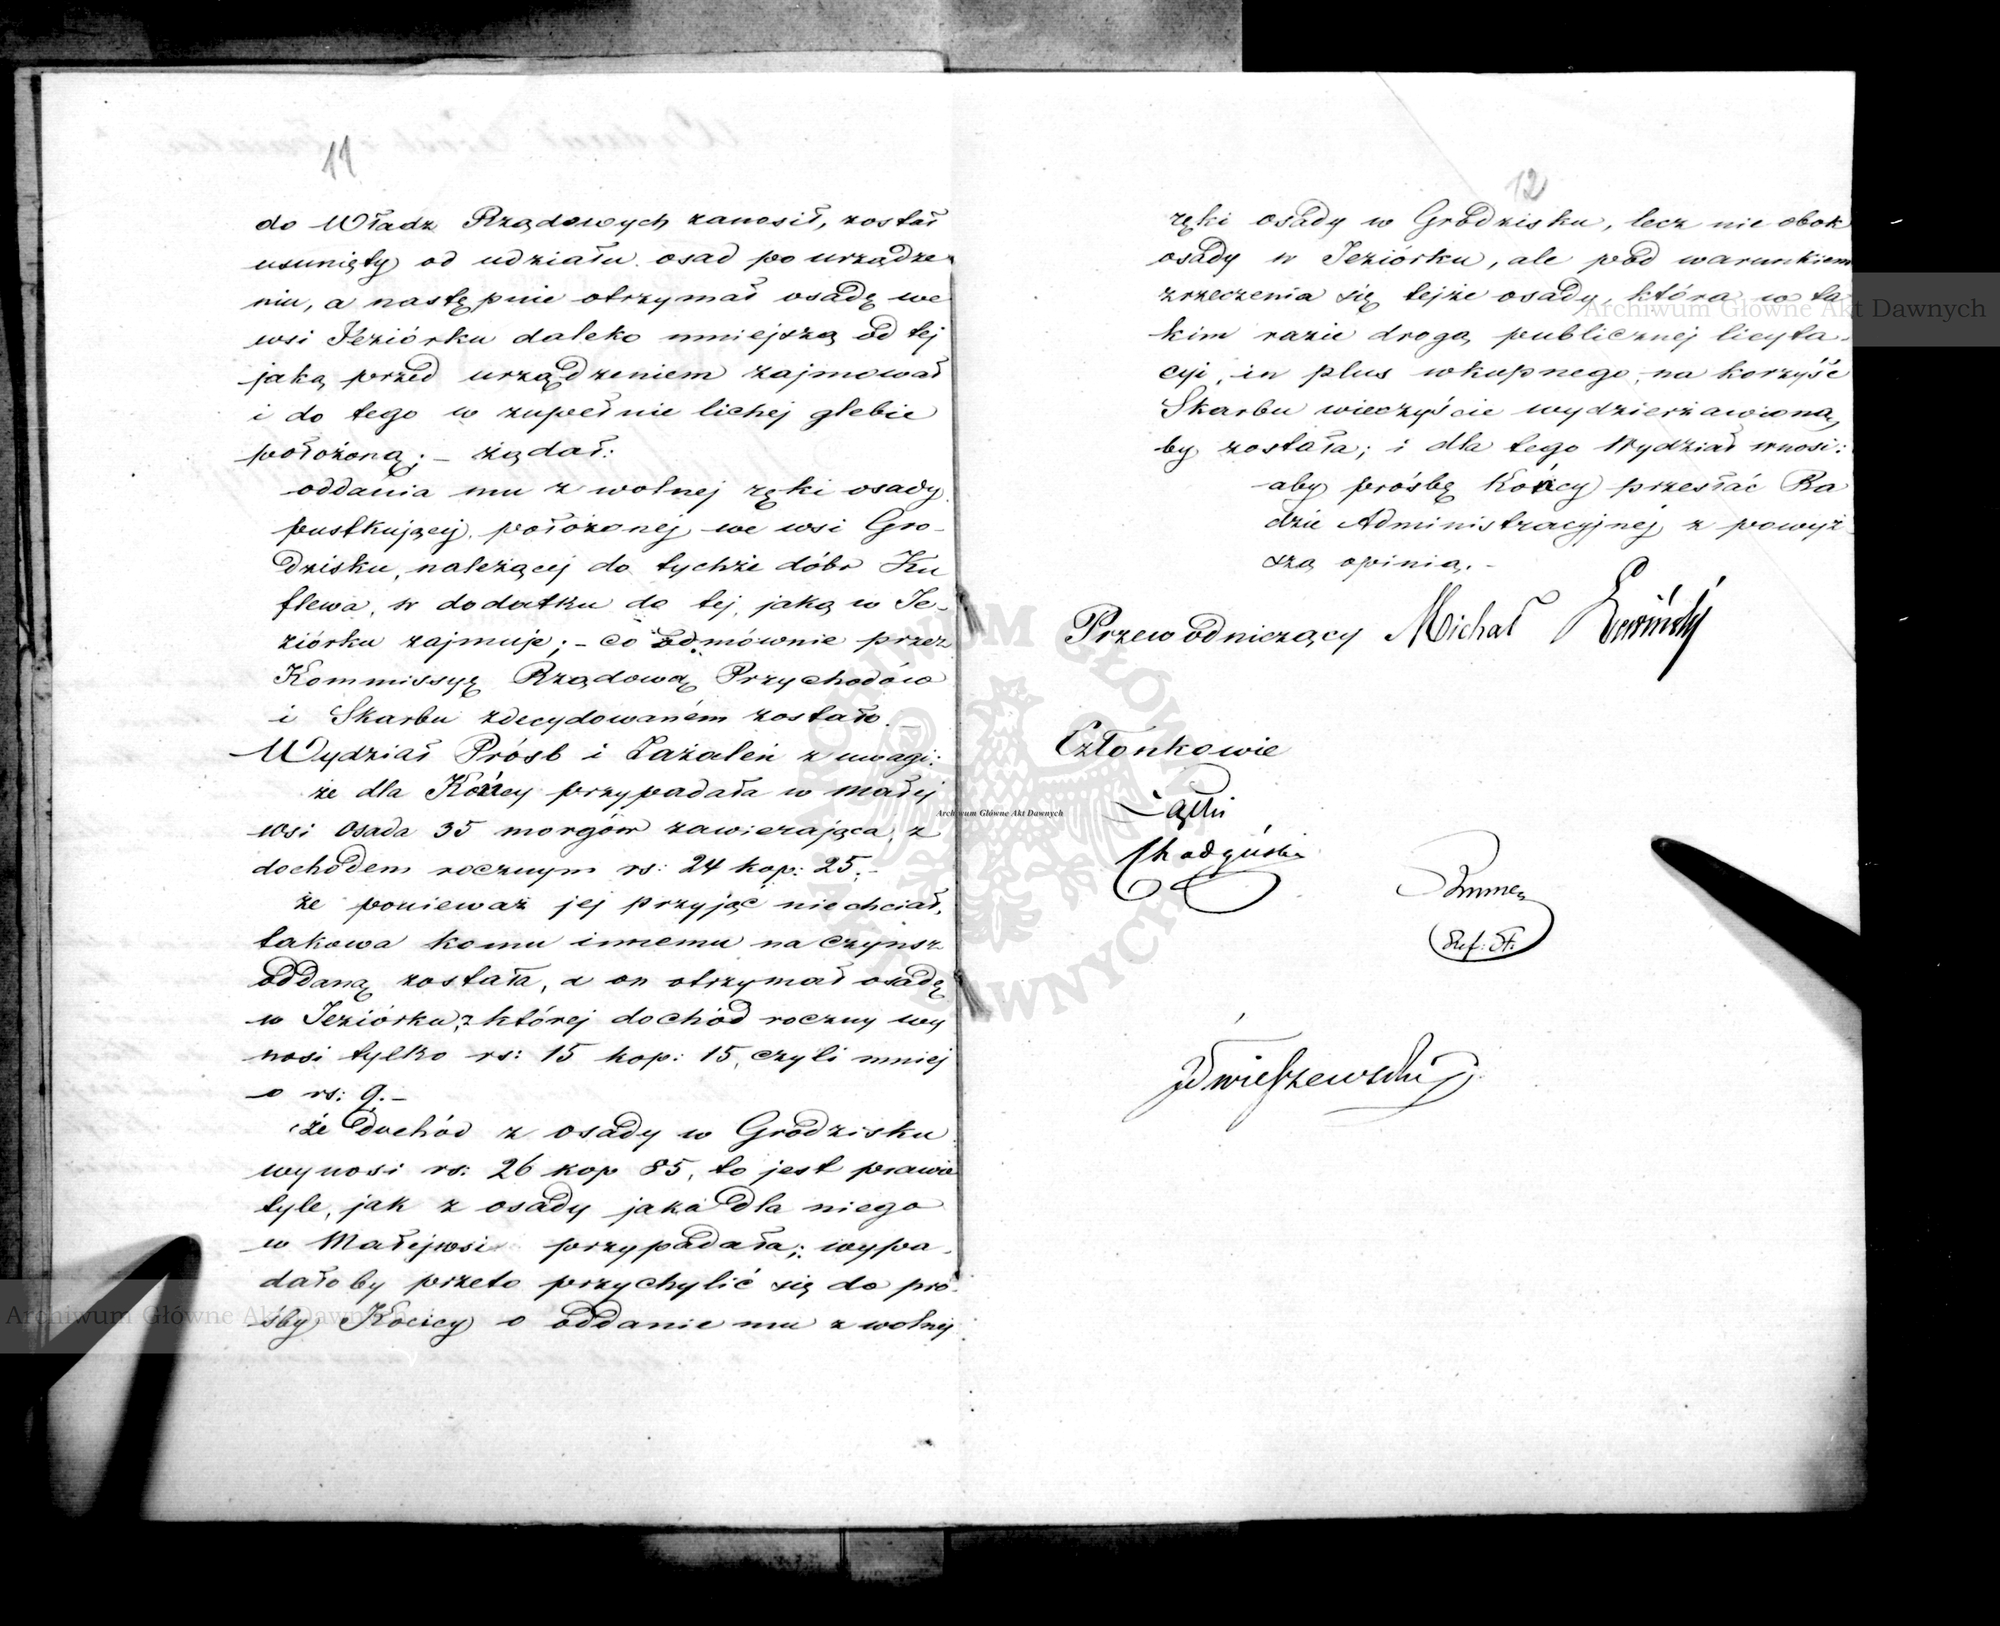 11
do Władz Rządowych zanosił, został
usunięty od udziału osad po urządze-
niu, a następnie otrzymał osadę we
wsi Jeziórku daleko mniejszą od tej
jaką przed urządzeniem zajmował
i do tego w zupełnie lichej glebie
położoną; – żądał:
oddania mu z wolnej ręki osady
pustkującej, położonej we wsi Gro-
dzisku, należącej do tychże dóbr Ku
flewa, w dodatku do tej, jaką w Je-
ziórku zajmuje; – co odmównie przez
Kommissyę Rządową Przychodów
i Skarbu zdecydowaném zostało. –
Wydział Próśb i Zażaleń z uwagi:
że dla Kończy przypadała w małej
wsi Osada 35 morgów zawierająca, z
dochodem rocznym rs: 24 kop: 25. –
że ponieważ jej przyjąć nie chciał,
takowa komu innemu na czynsz
oddaną została, a on otrzymał osadę
w Jeziórku, z której dochód roczny wy
nosi tylko rs: 15 kop: 15, czyli mniej
o rs: 9. –
że dochód z osady w Grodzisku
wynosi rs: 26 kop 85, to jest prawie
tyle, jak z osady jaka dla niego
w Małejwsi przypadała; wypa-
dałoby przeto przychylić się do pro-
śby Kończy o oddanie mu z wolnej
12
ręki osady w Grodzisku, lecz nie obok
osady w Jeziórku, ale pod warunkiem
zrzeczenia się tejże osady, która w ta
kim razie drogą publicznej licyta-
cyi, in plus wkupnego, na korzyść
Skarbu wieczyście wydzierżawioną
by została; i dla tego Wydział wnosi:
aby prośbę Kończy przesłać Ra
dzie Administracyjnej z powyż-
szą opinią. –
Przewodniczący Michał
Członkowie
Ref: St:
Archiwum Główne Akt Dawnych
Archiwum Główne Akt Dawnych
Archiwum Główne Akt Dawnych
ARCHIWUM GŁÓWNE AKT DAWNYCH